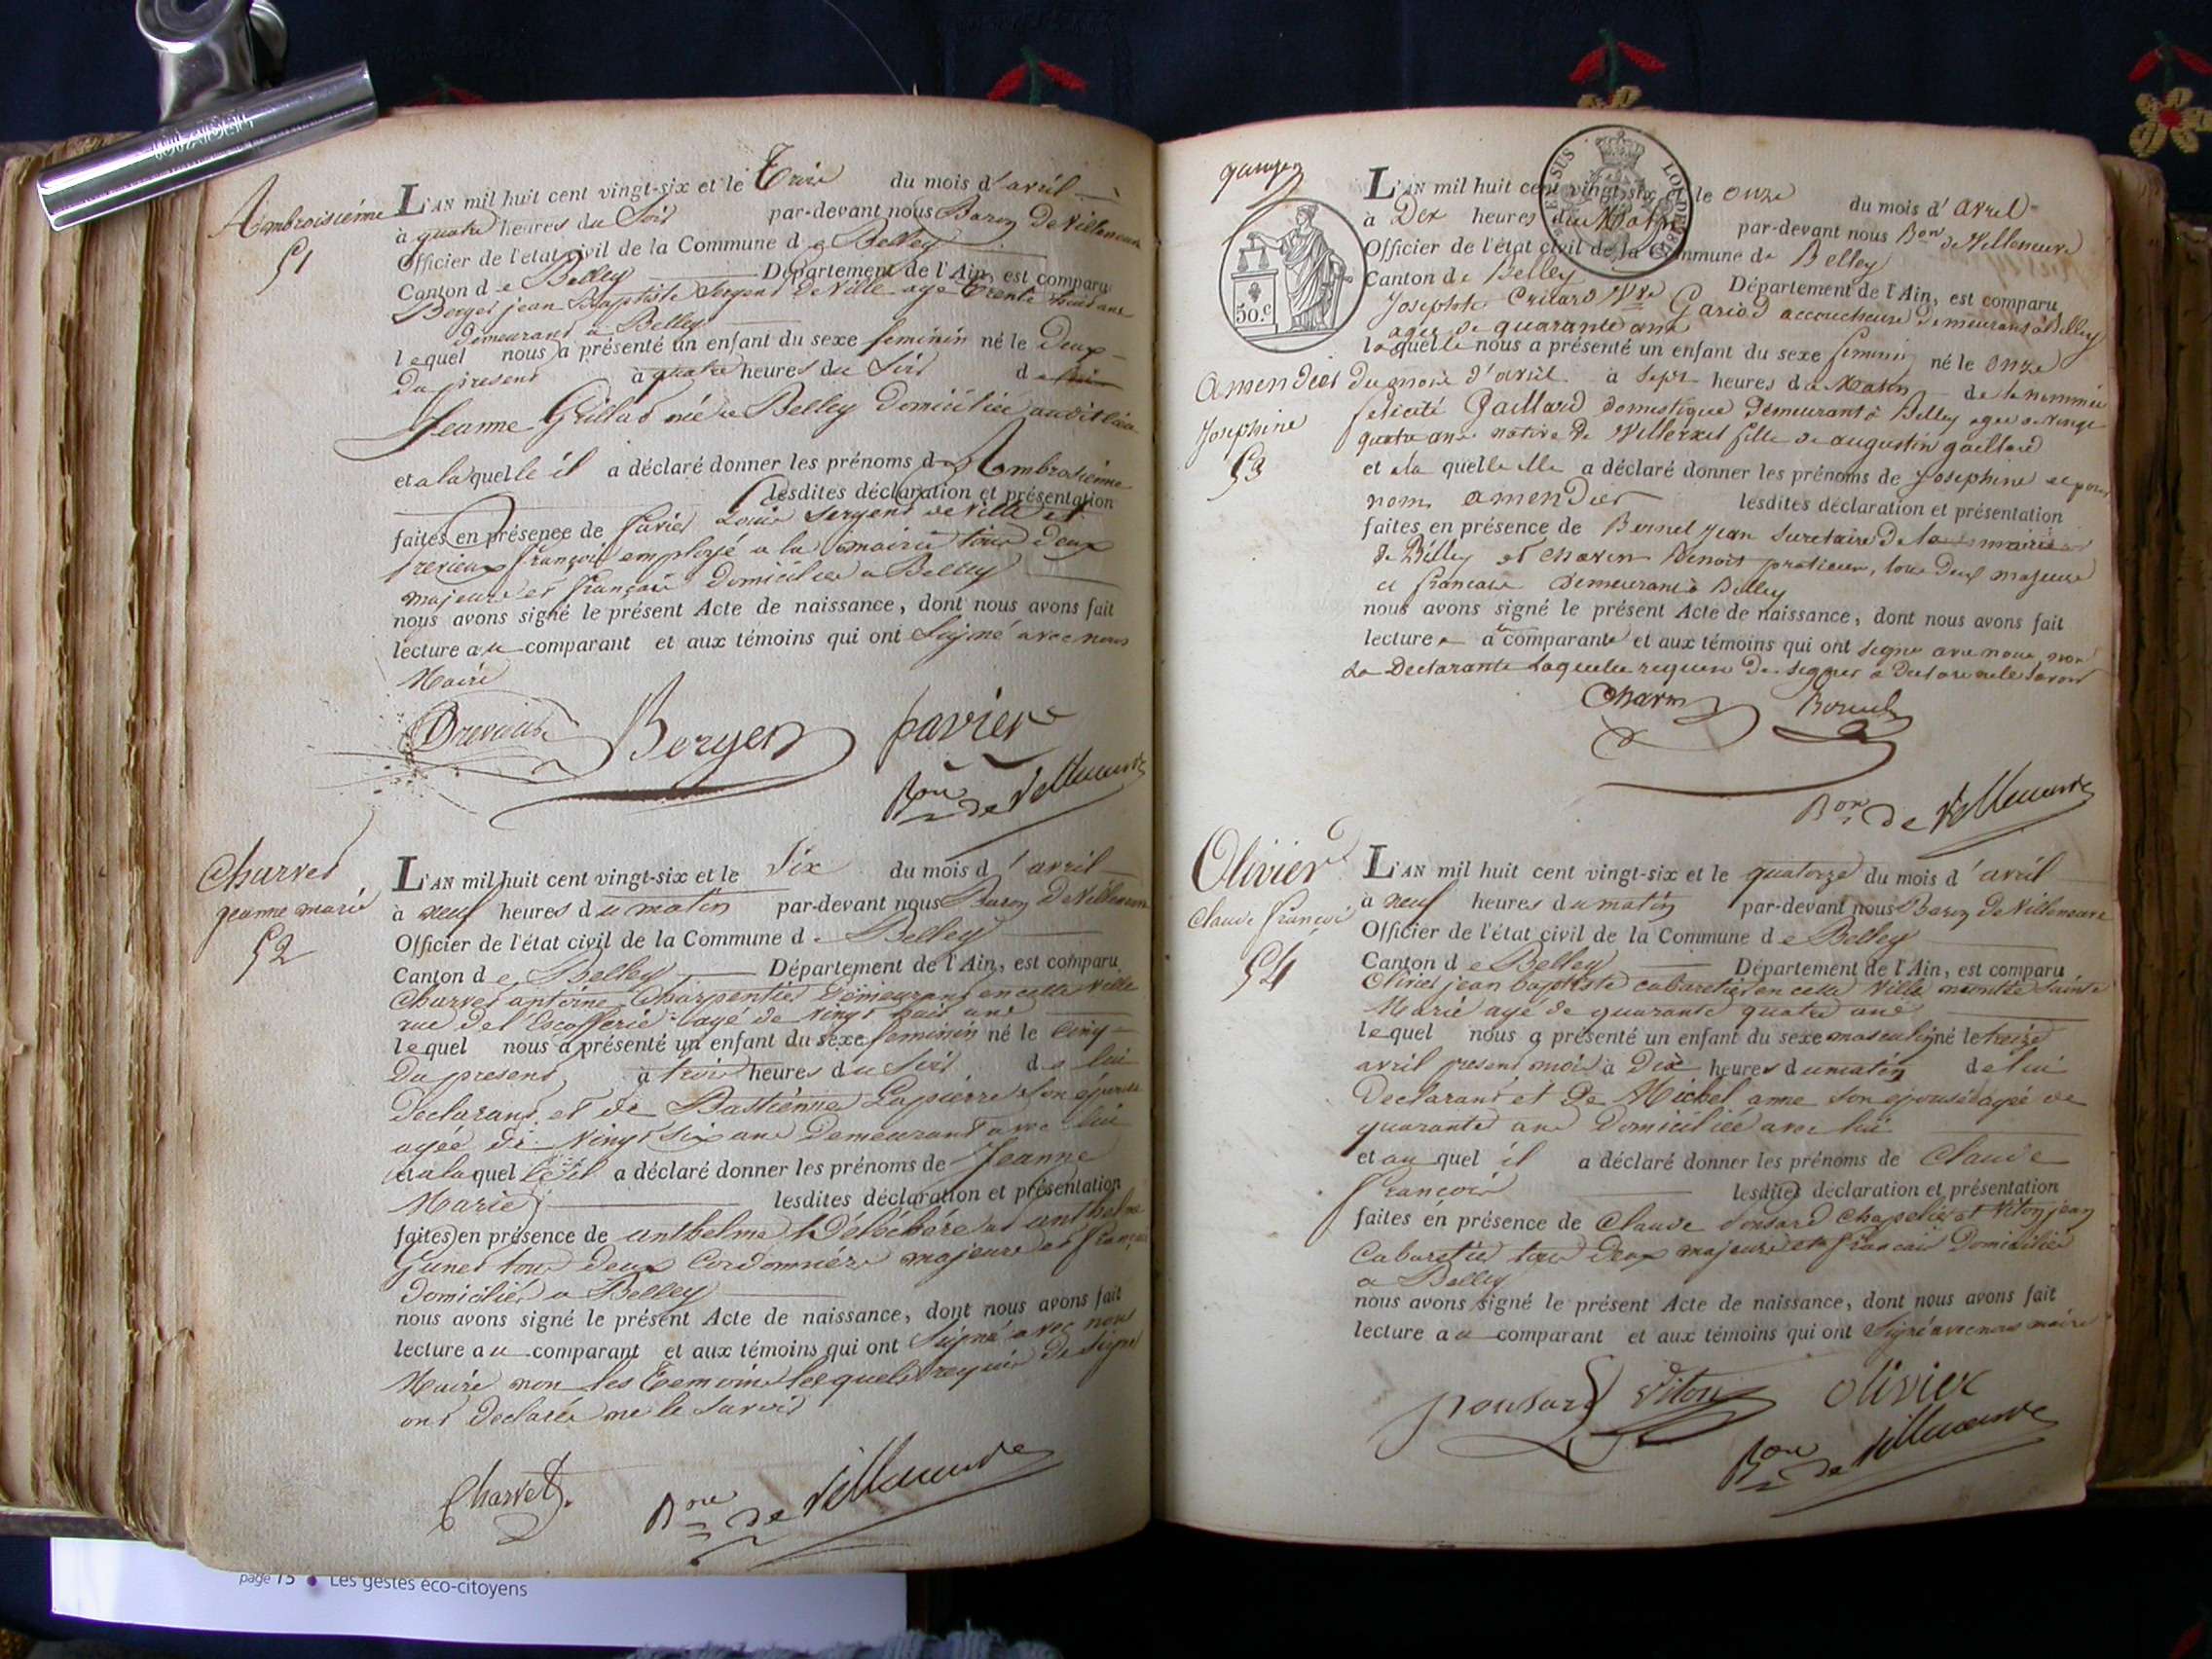 Ambroisiéne
51
L'AN mil huit cent vingt-six et le trois du mois d'avril
à quatre heures du Soir par-devant nous Baron De Villeneuve
Officier de l'état civil de la Commune de Belley
Canton de Belley Département de l'Ain, est comparu
Berger jean Baptiste Sergent De Ville agé trente huit ans
demeurant à Belley
lequel nous a présenté un enfant du sexe feminin né le Deux
Du present à quatre heures du Soir de
Jeanne née a Belley Domiciliée audit lieu
et a la quelle il a déclaré donner les prénoms d'Ambrosiéne
lesdites déclaration et présentation
faites en présence de favier Louis Sergent de ville et
françois employé a la mairie tous deux
majeurs et français Domiciliés a Belley
nous avons signé le présent Acte de naissance, dont nous avons fait
lecture au comparant et aux témoins qui ont Signé avec nous
Maire
Berger favier
Bon de Villeneuve
Charvet
jeanne marie
52
L'AN mil huit cent vingt-six et le Six du mois d'avril
à neuf heures du matin par-devant nous Baron De Villeneuve
Officier de l'état civil de la Commune de Belley
Canton de Belley Département de l'Ain, est comparu
Charvet antoine Charpentier Demeurant en cette ville
rue de l'Escofferie agé de vingt huit ans
lequel nous a présenté un enfant du sexe feminin né le cinq
Du present à trois heures du Soir de lui
Declarant et de Bastienne Lapierre son épouse
agée de vingt six ans Demeurant avec lui
et a la quelle il a déclaré donner les prénoms de Jeanne
Marie lesdites déclaration et présentation
faites en présence de anthelme et anthelme
tous deux Cordonniérs majeurs et français
Domiciliés a Belley
nous avons signé le présent Acte de naissance, dont nous avons fait
lecture au comparant et aux témoins qui ont Signé avec nous
Maire non les temoins lesquels requis de signer
ont declarés ne le Savoir
Charvet
Bon de Villeneuve
50.c
Amendier
Josephine
53
L'AN mil huit cent vingt-six et le onze du mois d'avril
à Dix heures du Matin par-devant nous Bon de Villeneuve
Officier de l'état civil de la Commune de Belley
Canton de Belley Département de l'Ain, est comparu
Josephte Gariod accoucheuse Demeurant à Belley
agée de quarante ans
laquelle nous a présenté un enfant du sexe feminin né le onze
du mois d'avril à Sept heures du Matin de la nommée
felicité Gaillard domestique demeurant à Belley agée de vingt
quatre ans native de fille de augustin gaillard
et a la quelle elle a déclaré donner les prénoms de Josephine et pour
nom amendier lesdites déclaration et présentation
faites en présence de Bornel jean Secretaire de la mairie
de Belley et Charin Benoit praticien, tous deux majeurs
et français demeurant à Belley
nous avons signé le présent Acte de naissance, dont nous avons fait
lecture a la comparante et aux témoins qui ont signé avec nous non
La Declarante laquelle requise De signer a declaré ne le Savoir
Charin Bornel
Bon de Villeneuve
Olivier
Claude françois
54
L'AN mil huit cent vingt-six et le quatorze du mois d'avril
à neuf heures du matin par-devant nous Baron De Villeneuve
Officier de l'état civil de la Commune de Belley
Canton de Belley Département de l'Ain, est comparu
Olivier jean baptiste cabaretier en cette Ville montée Sainte
Marie agé de quarante quatre ans
lequel nous a présenté un enfant du sexe masculin né le treize
avril present mois à Dix heures du matin de lui
Declarant et De Michel anne son épouse agée de
quarante ans Domiciliée avec lui
et au quel il a déclaré donner les prénoms de Claude
françois lesdites déclaration et présentation
faites en présence de Claude Ponsard Chapelier et Viton jean
Cabaretier tous deux majeurs et français Domiciliés
a Belley
nous avons signé le présent Acte de naissance, dont nous avons fait
lecture au comparant et aux témoins qui ont Signé avec nous maire
Ponsard Viton Olivier
Bon de Villeneuve
page 15 • Les gestes éco-citoyens